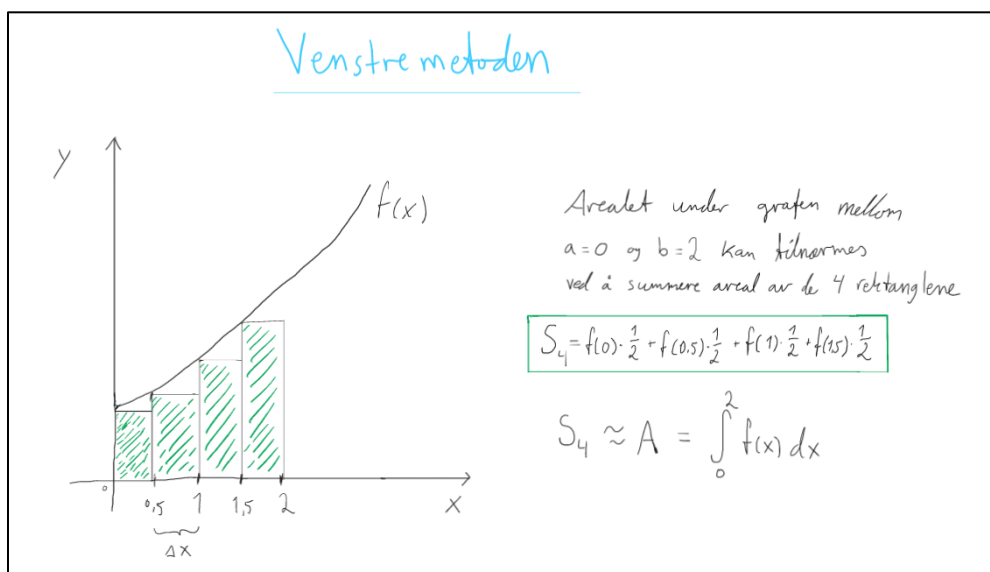 Venstremetoden
y
f(x)
Arealet under grafen mellom
a=0 og b=2 kan tilnærmes
ved å summere areal av de 4 rektanglene
S₄ = f(0)·1/2 + f(0,5)·1/2 + f(1)·1/2 + f(1,5)·1/2
S₄ ≈ A = ∫₀² f(x) dx
0 0,5 1 1,5 2 x
Δx